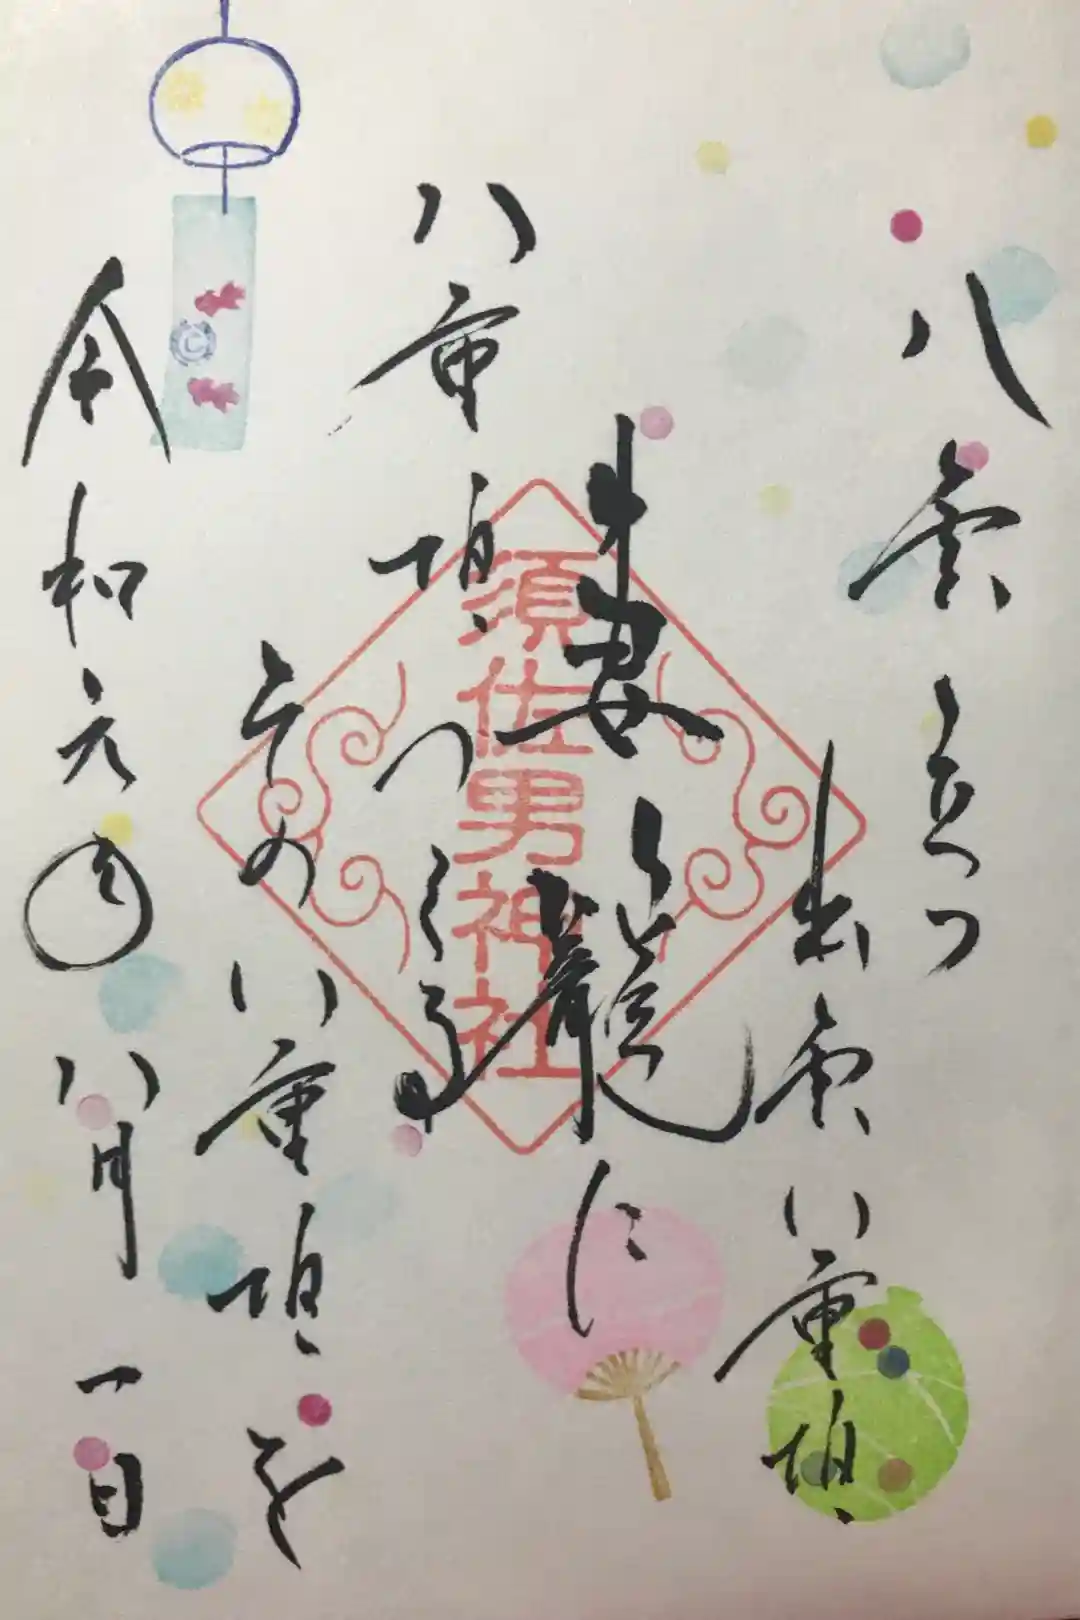 八雲立つ
出雲八重垣
妻籠に
八重垣
つくる
その八重垣を
令和元年八月一日
須佐男神社
C